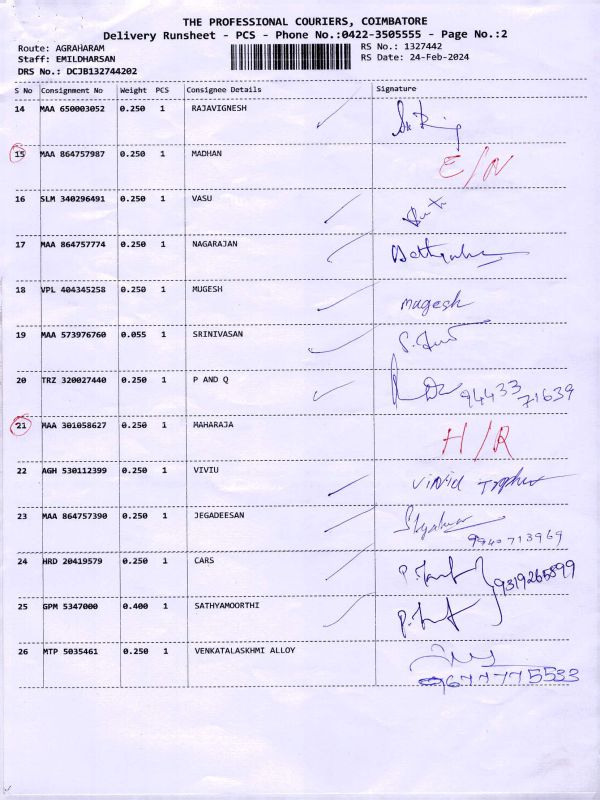 THE PROFESSIONAL COURIERS, COIMBATORE
Delivery Runsheet - PCS - Phone No.:0422-3505555 - Page No.:2
Route: AGRAHARAM RS No.: 1327442
Staff: EMILDHARSAN RS Date: 24-Feb-2024
DRS No.: DCJB132744202
S No Consignment No Weight PCS Consignee Details Signature
14 MAA 650003052 0.250 1 RAJAVIGNESH
15 MAA 864757987 0.250 1 MADHAN E/N
16 SLM 340296491 0.250 1 VASU
17 MAA 864757774 0.250 1 NAGARAJAN
18 VPL 404345258 0.250 1 MUGESH magesh
19 MAA 573976760 0.055 1 SRINIVASAN
20 TRZ 320027440 0.250 1 P AND Q 94433
71639
21 MAA 301058627 0.250 1 MAHARAJA H/R
22 AGH 530112399 0.250 1 VIVIU
23 MAA 864757390 0.250 1 JEGADEESAN
9940713969
24 HRD 20419579 0.250 1 CARS 9319265899
25 GPM 5347000 0.400 1 SATHYAMOORTHI
26 MTP 5035461 0.250 1 VENKATALASKHMI ALLOY
677775533